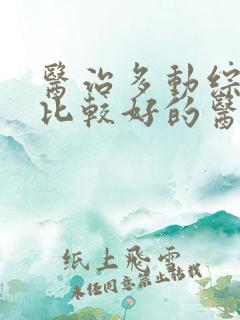 醫治多動綜
比較好的醫
纸上飛雲
未经同意禁止转载